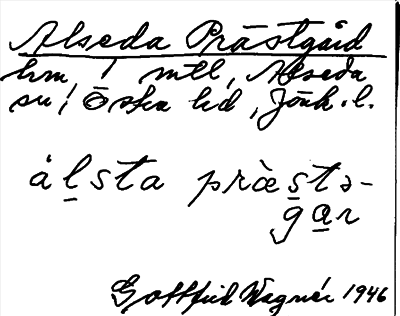 Alseda Prästgård
hm 1 mtl, Alseda
sn, Östra hd, Jönk. l.
àl̲sta pràes̲tə-
ga̲r
Gottfrid Wagnér 1946